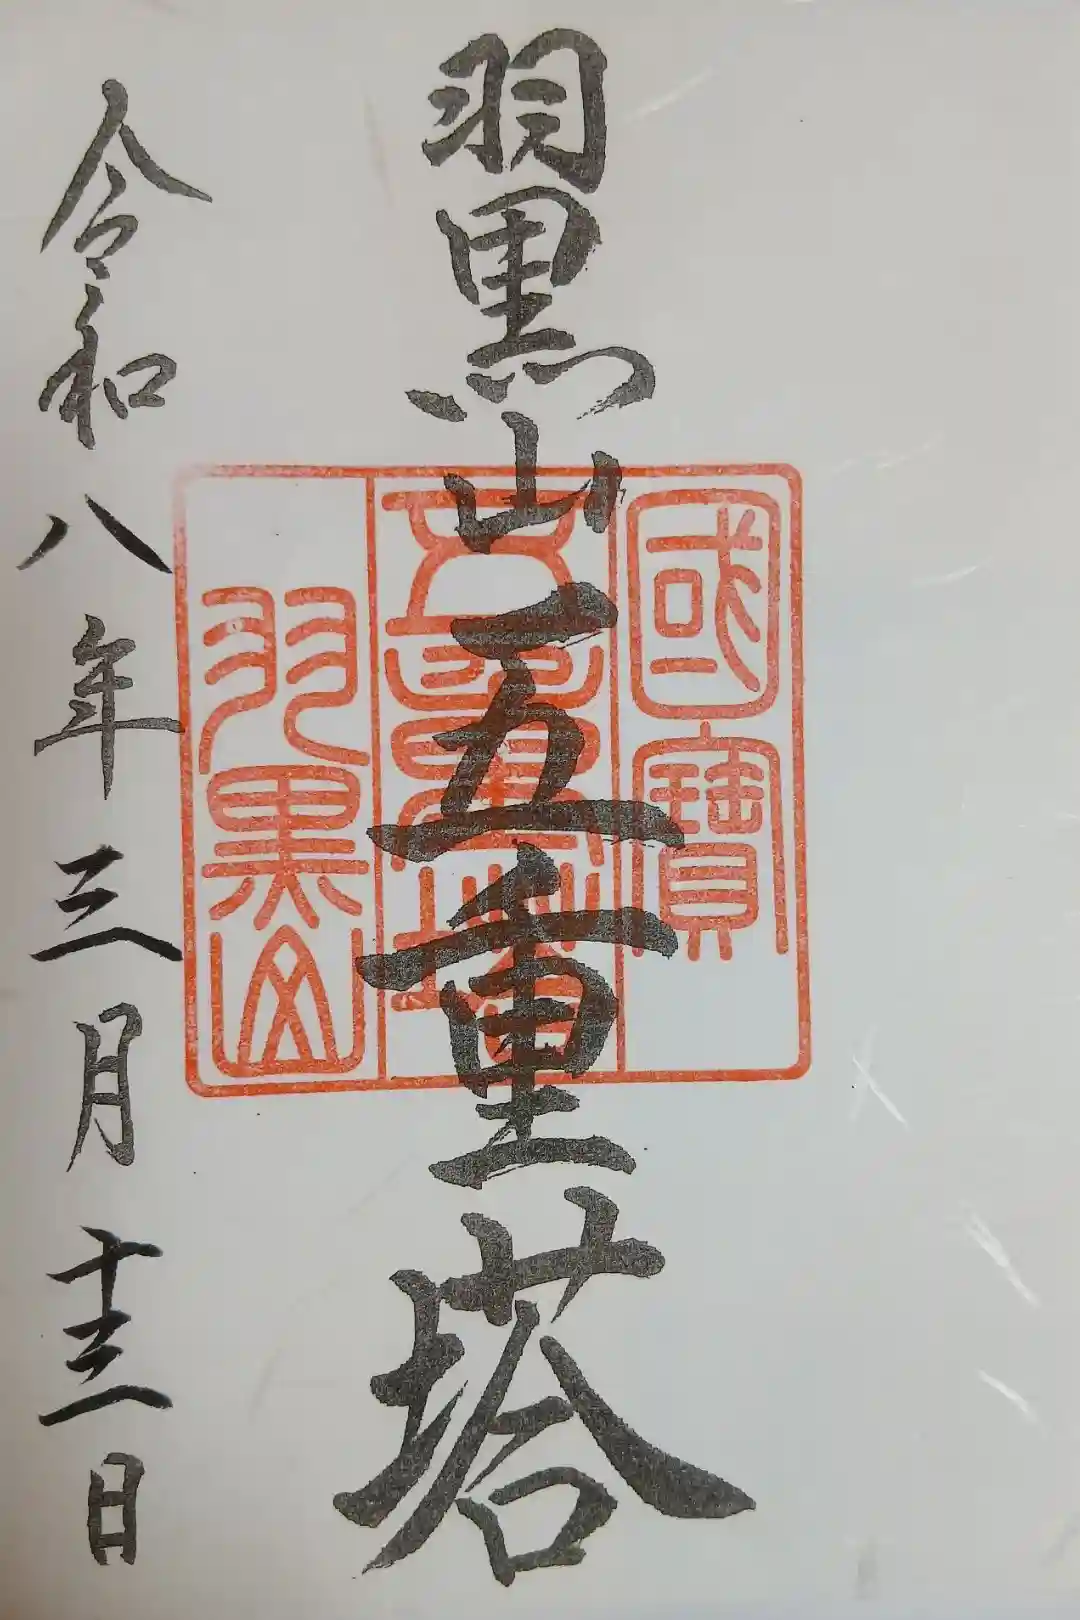 羽黒山五重塔
國寳
五重塔
羽黒山
令和八年三月十三日